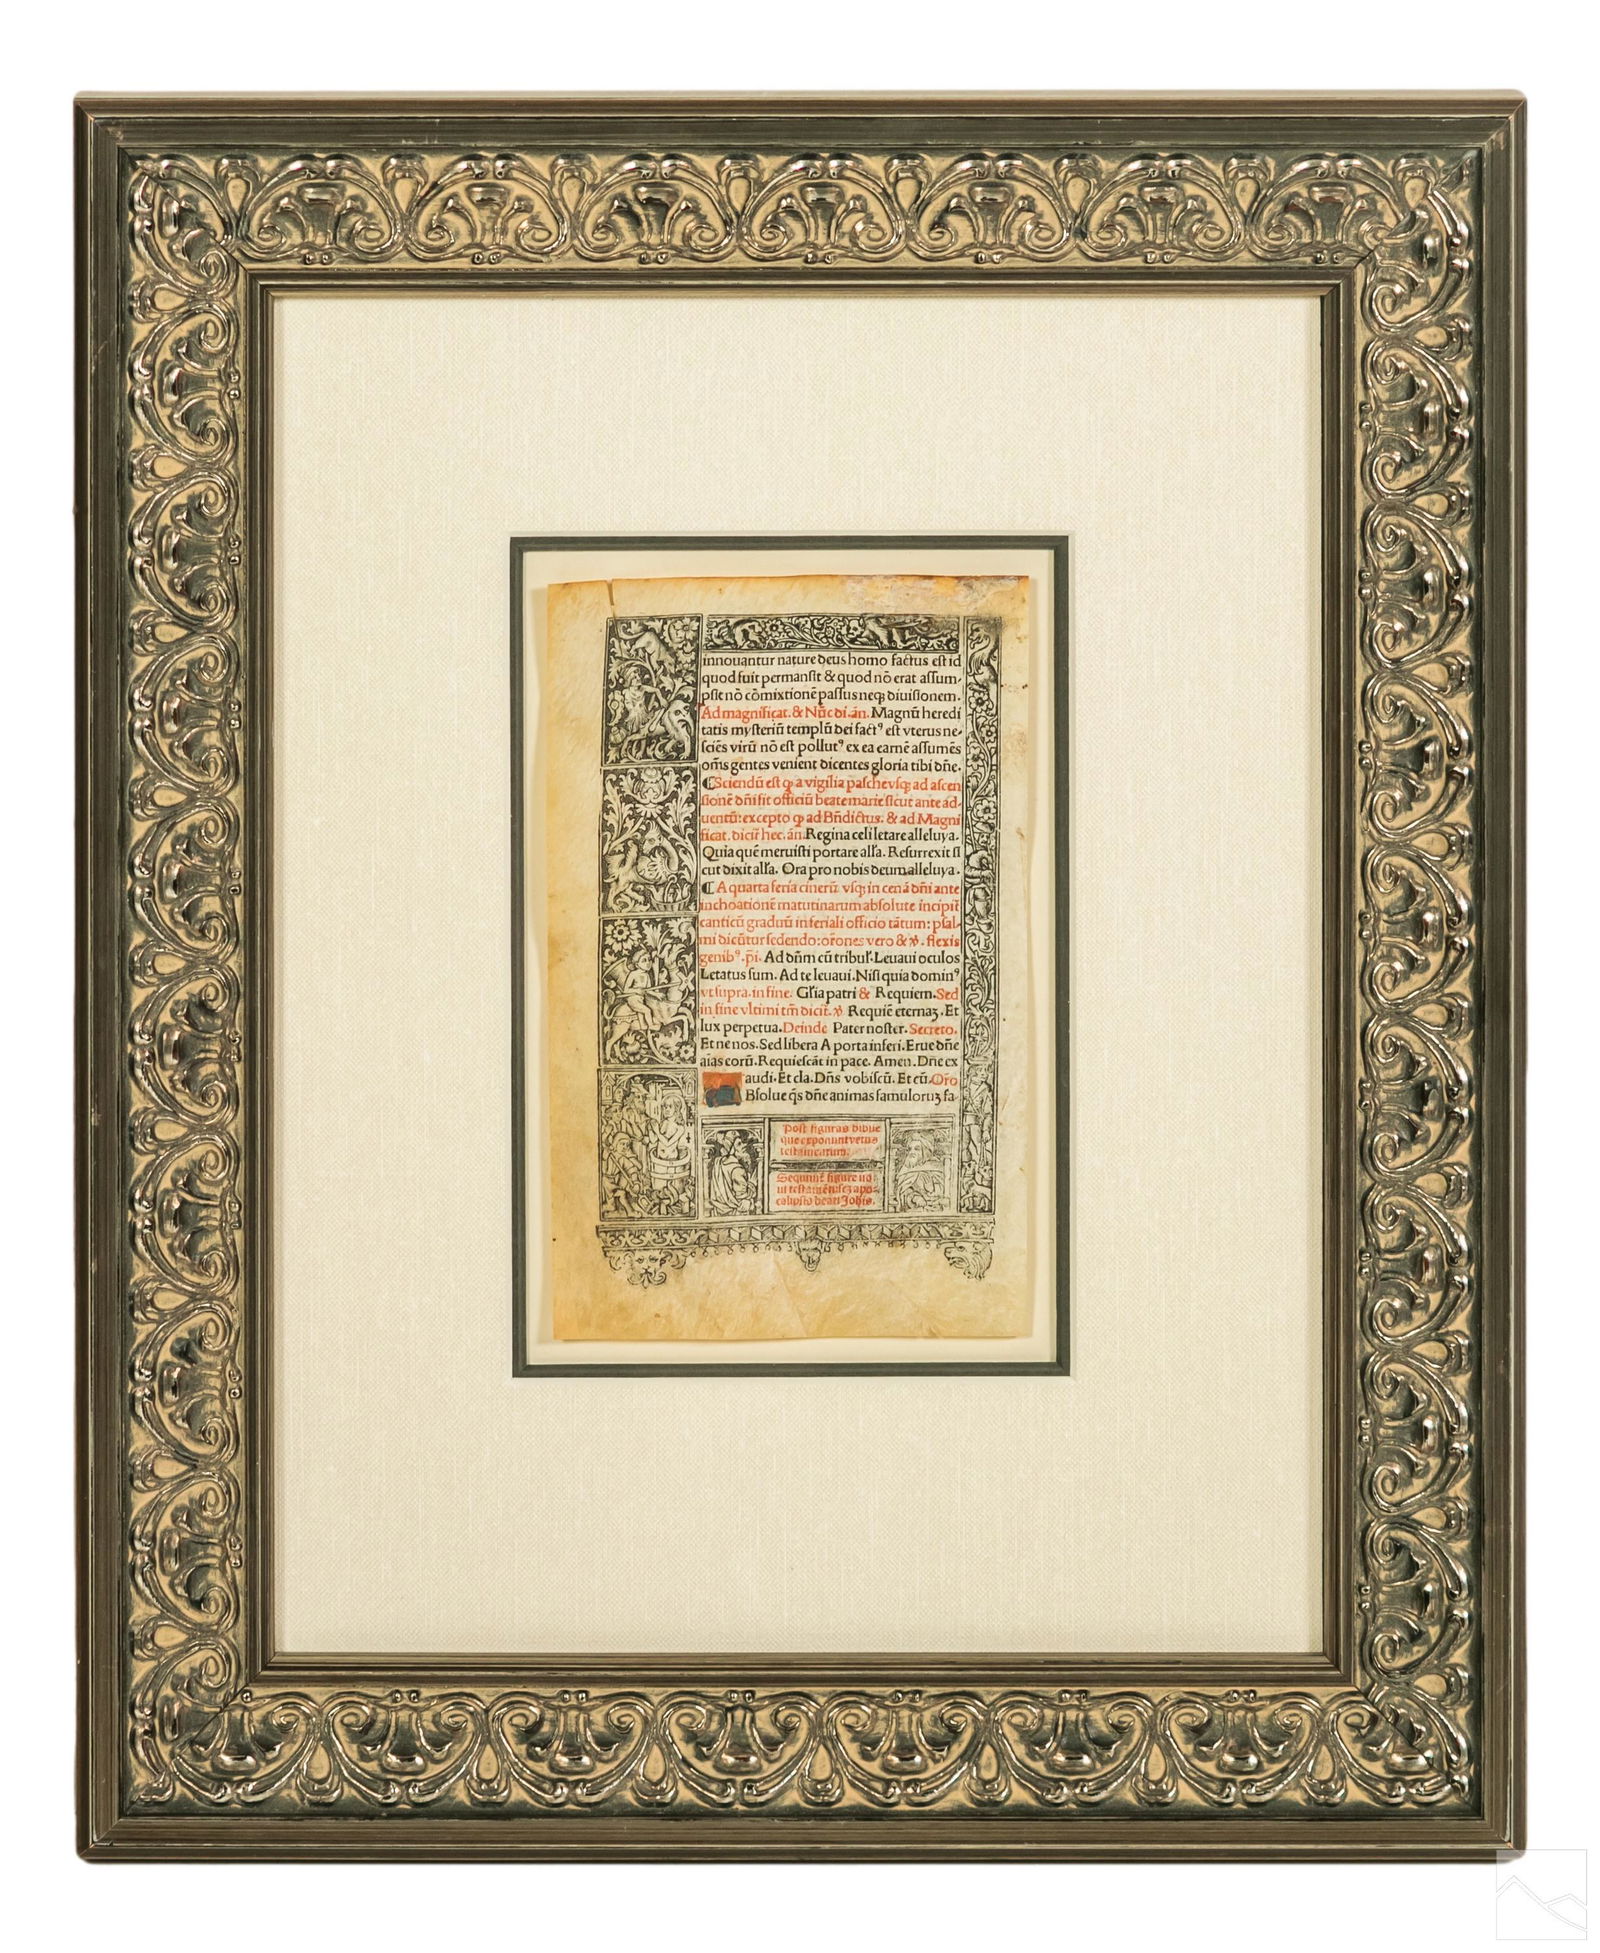 innouantur nature deus homo factus est id
quod fuit permansit & quod nō erat assum-
psit nō cōmixtionē passus neqꝫ diuisionem.
Ad magnificat. & Nūc di. añ. Magnū heredi
tatis mysteriū templū dei factꝰ est vterus ne-
sciēs virū nō est pollutꝰ ex ea earnē assumēs
om̄s gentes venient dicentes gloria tibi dñe.
¶ Sciendū est ꝙ a vigilia pasche vsqꝫ ad ascen
sionē dñi sit officiū beate marie sicut ante ad-
uentū: excepto ꝙ ad Bñdictus. & ad Magni
ficat. dicit̄ hec. añ. Regina celi letare alleluya.
Quia quē meruisti portare alła. Resurrexit si
cut dixit alła. Ora pro nobis deum alleluya.
¶ A quarta feria cinerū vsqꝫ in cenā dñi ante
inchoationē matutinarum absolute incipit̄
canticū graduū in feriali officio tātum: psal-
mi dicūtur sedendo: orōnes vero & ꝟ. flexis
genibꝰ. p̄i. Ad dn̄m cū tribuł. Leuaui oculos
Letatus sum. Ad te leuaui. Nisi quia dominꝰ
vt supra. in fine. Głia patri & Requiem. Sed
in fine vltimi tm̄ dicit̄. ꝟ Requiē eternaꝫ. Et
lux perpetua. Deinde Pater noster. Secreto.
Et ne nos. Sed libera A porta inferi. Erue dñe
aīas eorū. Requiescāt in pace. Amen. Dñe ex
audi. Et cla. Dñs vobiscū. Et cū. Oro
Bsolue q̄s dñe animas famuloruꝫ fa-
Post figuras biblie
que exponunt vetus
testamentum.
Sequunt̄ figure no
ui testamēti sez apo-
calipsis beati Johīs.